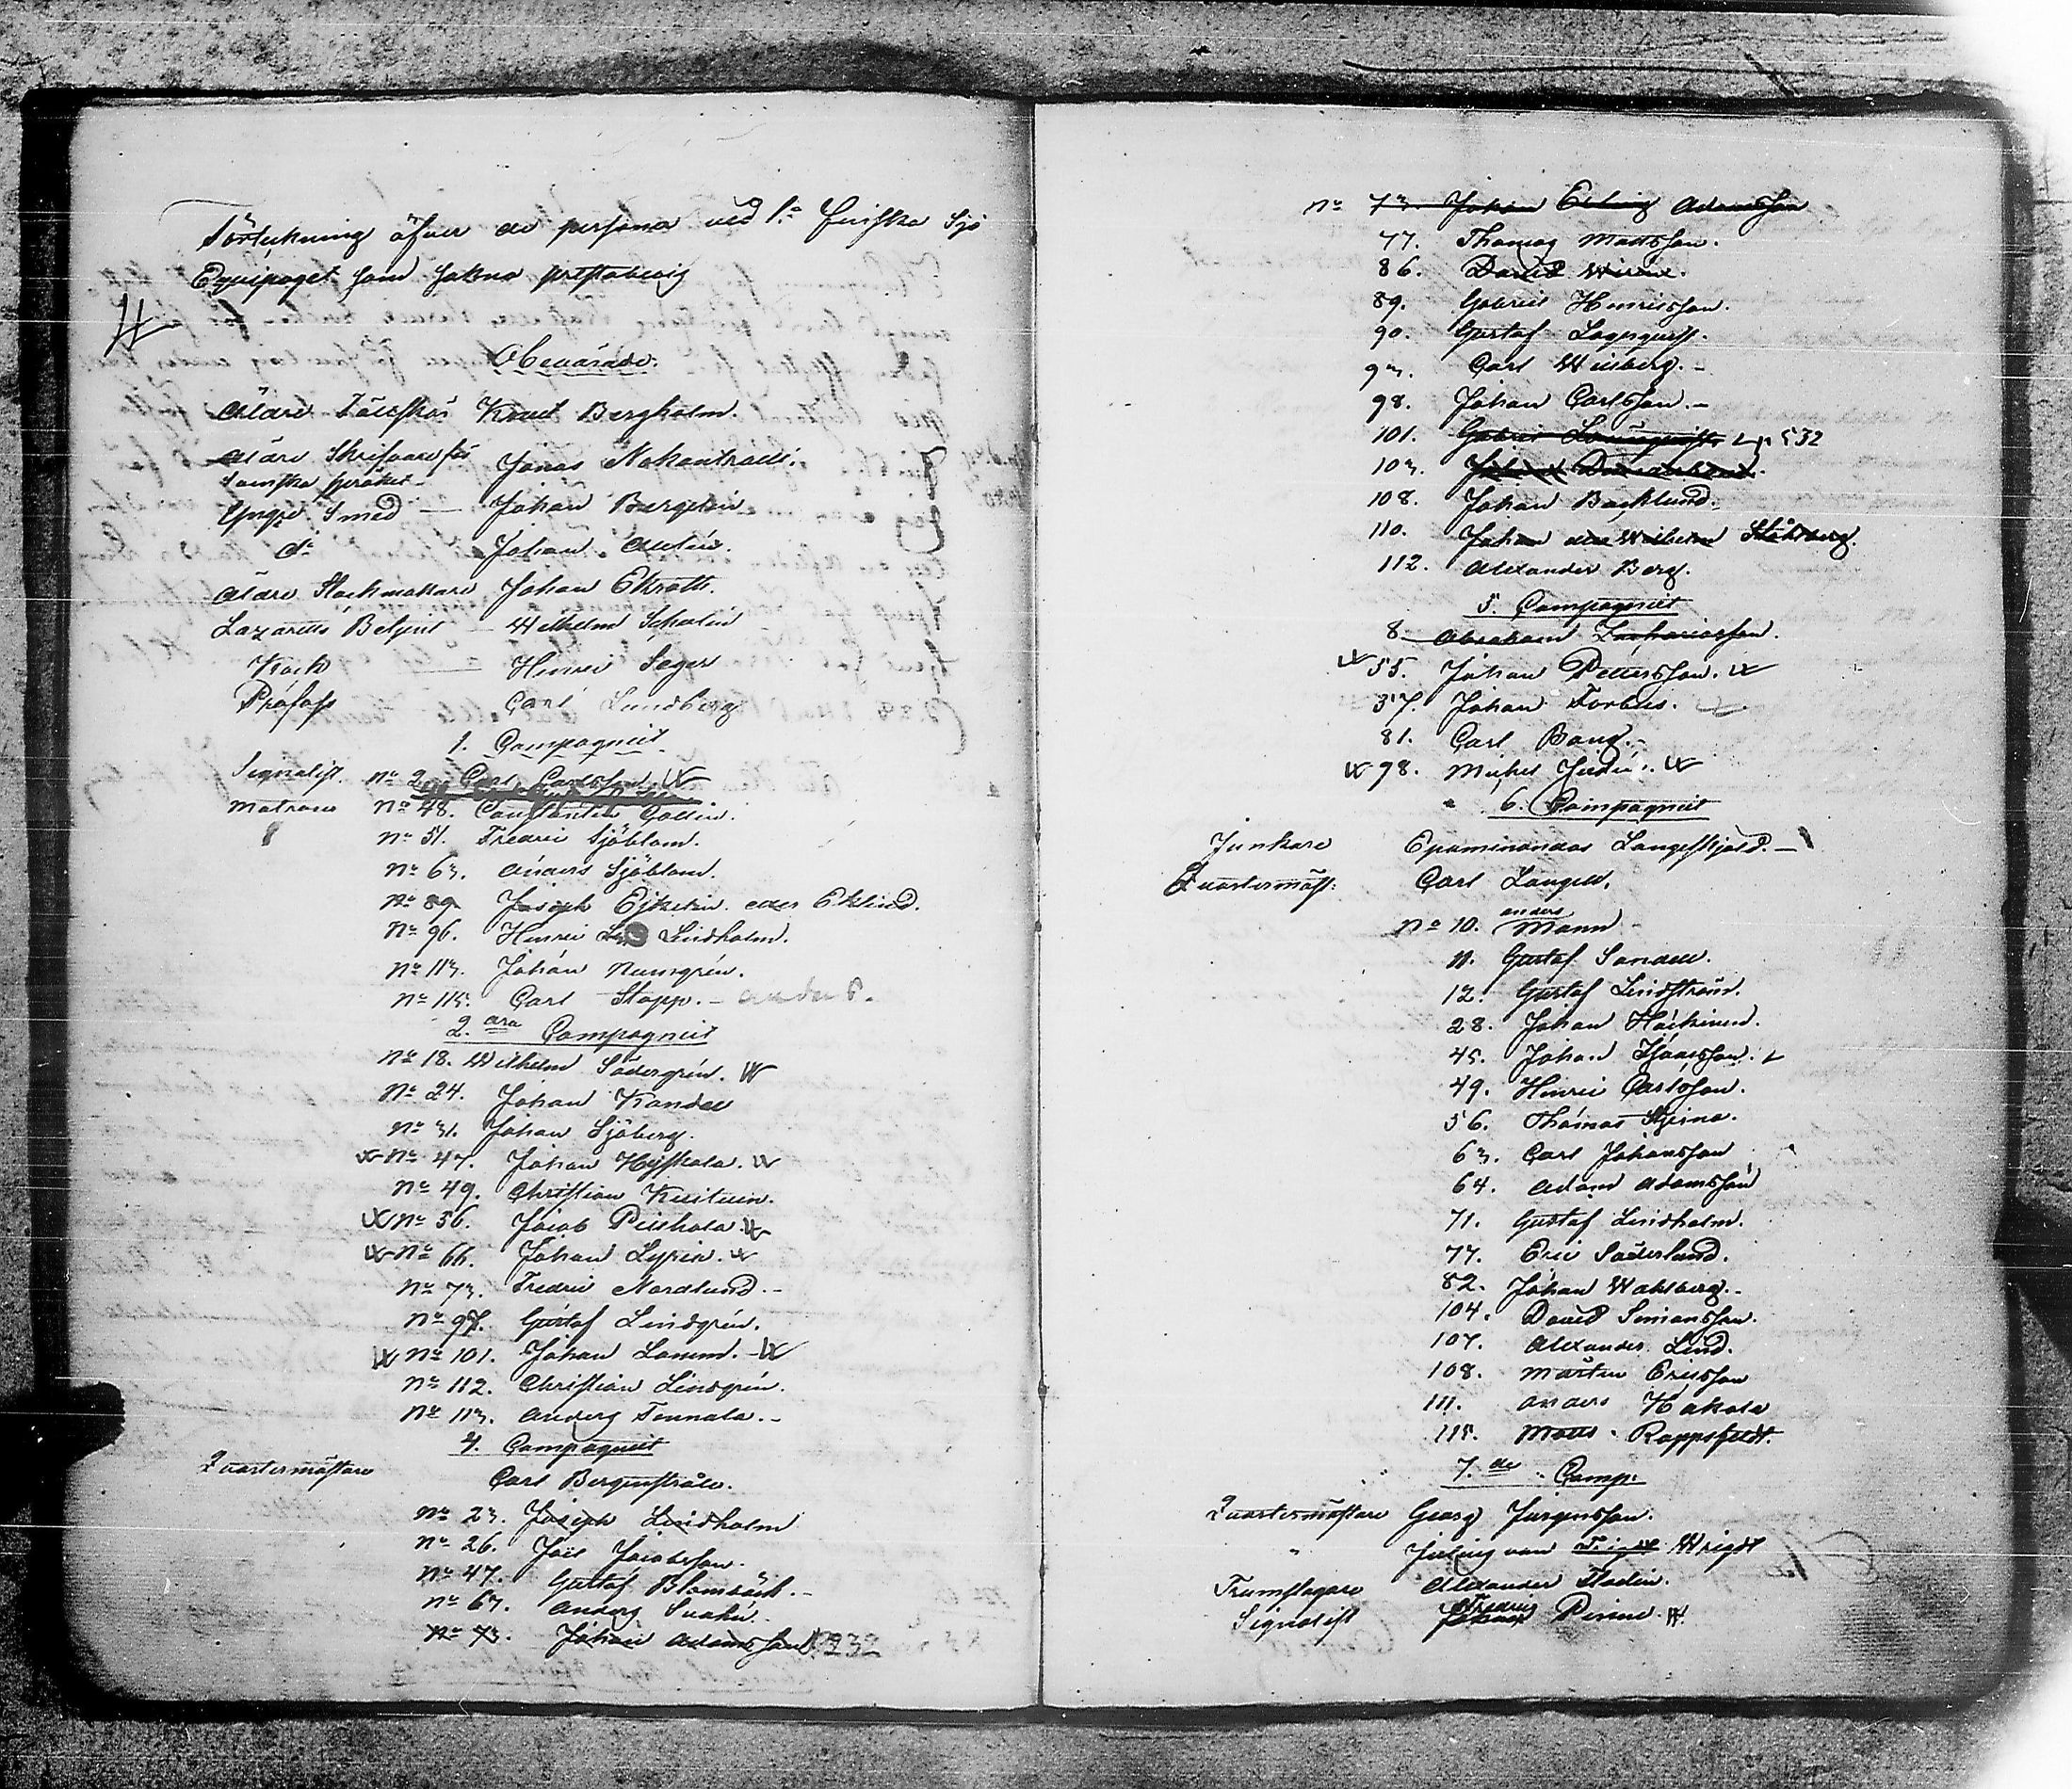 Förtekning öfver de persone ved 1:a Finska Sjö
Equipaget som sakna prestabevis
Obevärade.
Äldre Fältskär Knut Bergholm.
Äldre Skrifvare för Jonas
Svenska språket
Yngre Smed — Johan Bergelin
d:o Johan Autén.
Äldre Stockmakare Johan Ekroth.
Lazaretts Betjent — Wilhelm Schalin
Kock — Henric Seger
Profoss Carl Lundberg
1. Compagniet
Signalist. No 2. Carl Carlsson
Matros No 48. Constantin Collin.
No 51. Fredric Sjöblom.
No 63. Anders Sjöblom.
No 89 Joseph eller Eklund.
No 96. Henric Lindholm.
No 113. Johan Numgrén.
No 115. Carl Stapp. —
2. dra Compagniet
No 18. Wilhelm Södergrén.
No 24. Johan Kandell
No 31. Johan Sjöberg.
No 47. Johan Hyskala.
No 49. Christian
No 56. Jacob
No 66. Johan
No 73. Fredric Nordlund. -
No 97. Gustaf Lindgrén.
No 101. Johan Lamm. -
No 112. Christian Lindgrén.
No 113. Anders Tennala. -
4. Compagniet
Quartermästare Carl Bergenstråle.
No 23. Joseph Lindholm
No 26. Joel Jacobsson.
No 47. Gustaf Blombäck. -
No 63. Anders Svahn.
No 73. Johan Adamsson 232
No 73. Johan Adamsson
77. Thomas Mattsson.
86. David Wirén.
89. Gabriel Henricsson.
90. Gustaf Lagerqvist.
93. Carl Wiiberg. -
98. Johan Carlsson. -
101. Gabriel 532
103. Johan
108. Johan Backlund.
110. Johan Wilhelm Ståhlberg.
112. Alexander Berg.
5. Compagniet
8. Abraham Zachariasson.
55. Johan Pettersson.
57. Johan Forbus.
81. Carl Bang. -
98. Michel
6. Compagniet
Junkare Epaminondas Langeskjöld. —
Quartermäst: Carl Langell.
anders
No 10. Mann
11. Gustaf Sandell.
12. Gustaf Lindström.
28. Johan Häckinen.
45. Johan Isaacsson.
49. Henric Carlsson.
56. Thomas Stjerna.
63. Carl Johansson
64. Adam Adamsson
71. Gustaf Lindholm.
77. Eric Söderlund.
82. Johan Wahlberg. -
104. David Simonsson.
107. Alexander Lind.
108. Mårten Ericsson
111. Anders Hakala
115. Matts Rappsfeldt.
7. de Comp:
Quartermästare Georg Jurgensson.
" von Wrigdt
Trumslagare Alexander Flodin.
Fredric
Signalist Johan Pirine.